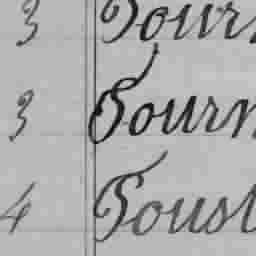 3 Tourn
3 Tourn
4 Toust